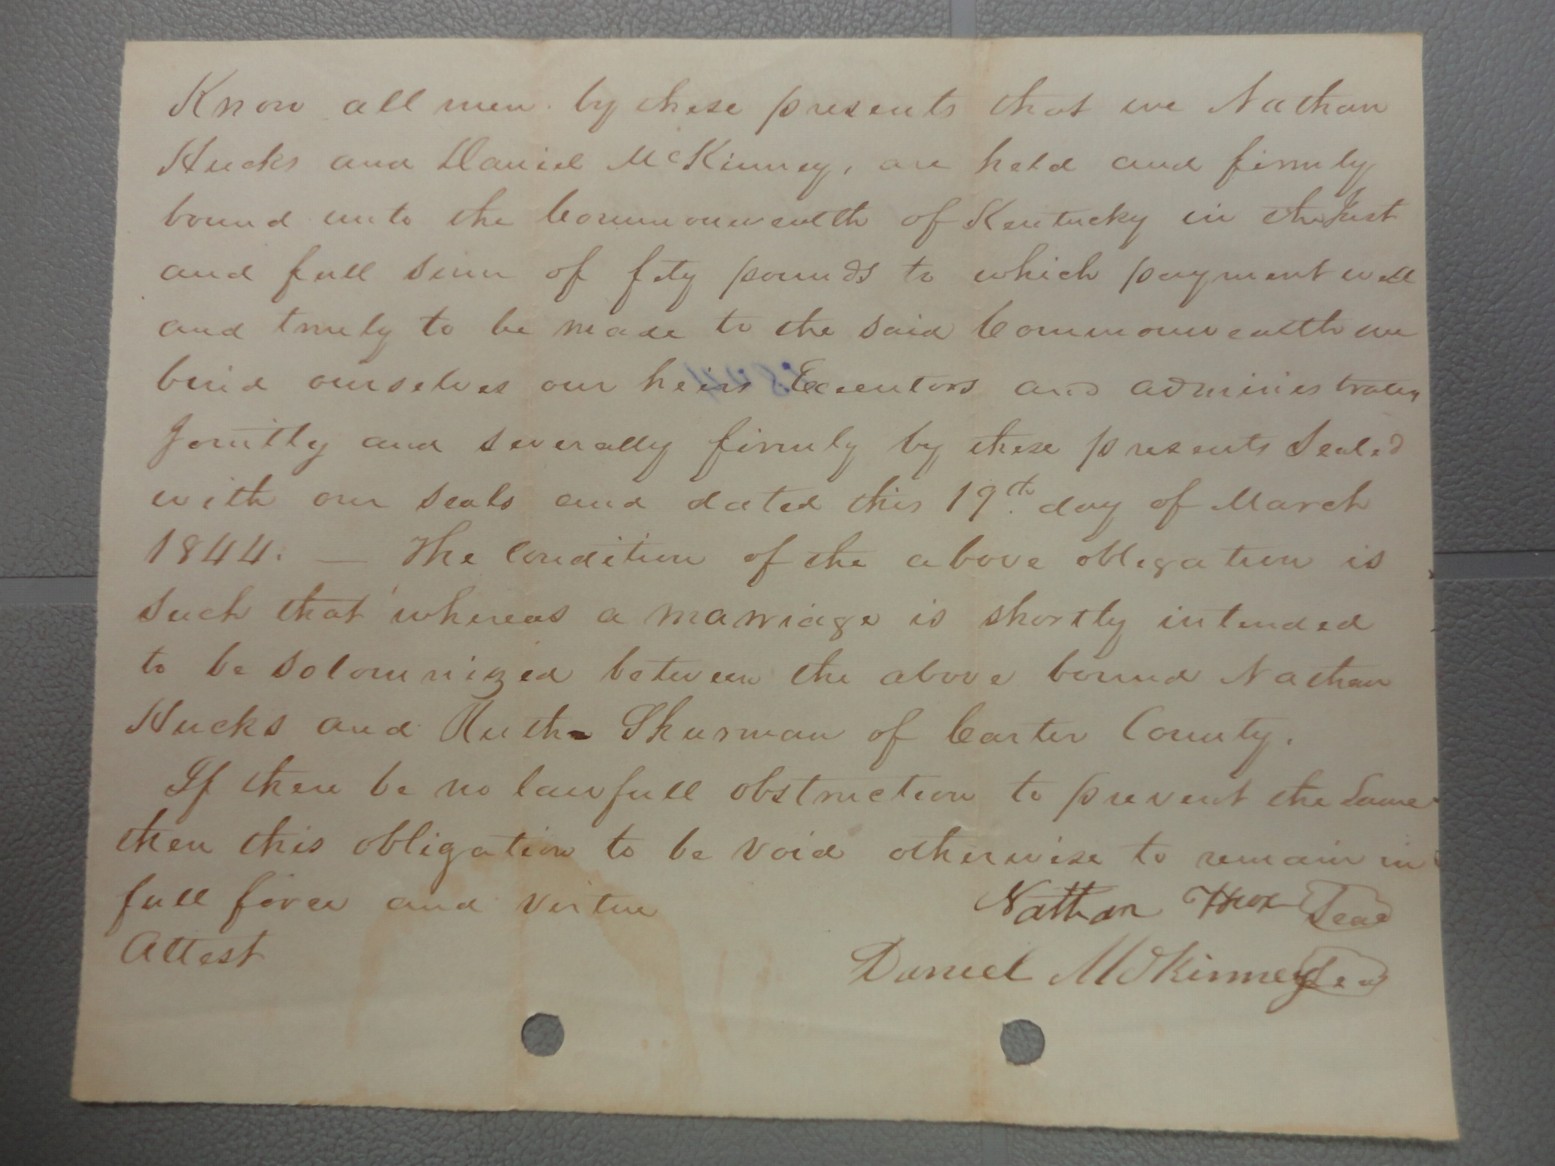 Know all men by these presents that we Nathan
Hucks and Daniel McKinney, are held and firmly
bound unto the Commonwealth of Kentucky in the Just
and full sum of fifty pounds to which payment well
and truely to be made to the said Commonwealth we
bind ourselves our heirs Executors and administrators
Jointly and severally firmly by these presents Sealed
with our seals and dated this 19th day of March
1844. — The Condition of the above obligation is
such that whereas a marriage is shortly intended
to be solomnized between the above bound Nathan
Hucks and Ruth Shurman of Carter County.
If there be no lawfull obstruction to prevent the Same
then this obligation to be void otherwise to remain in
full force and virtue
Nathan Seal
Attest
Daniel McKinney Seal